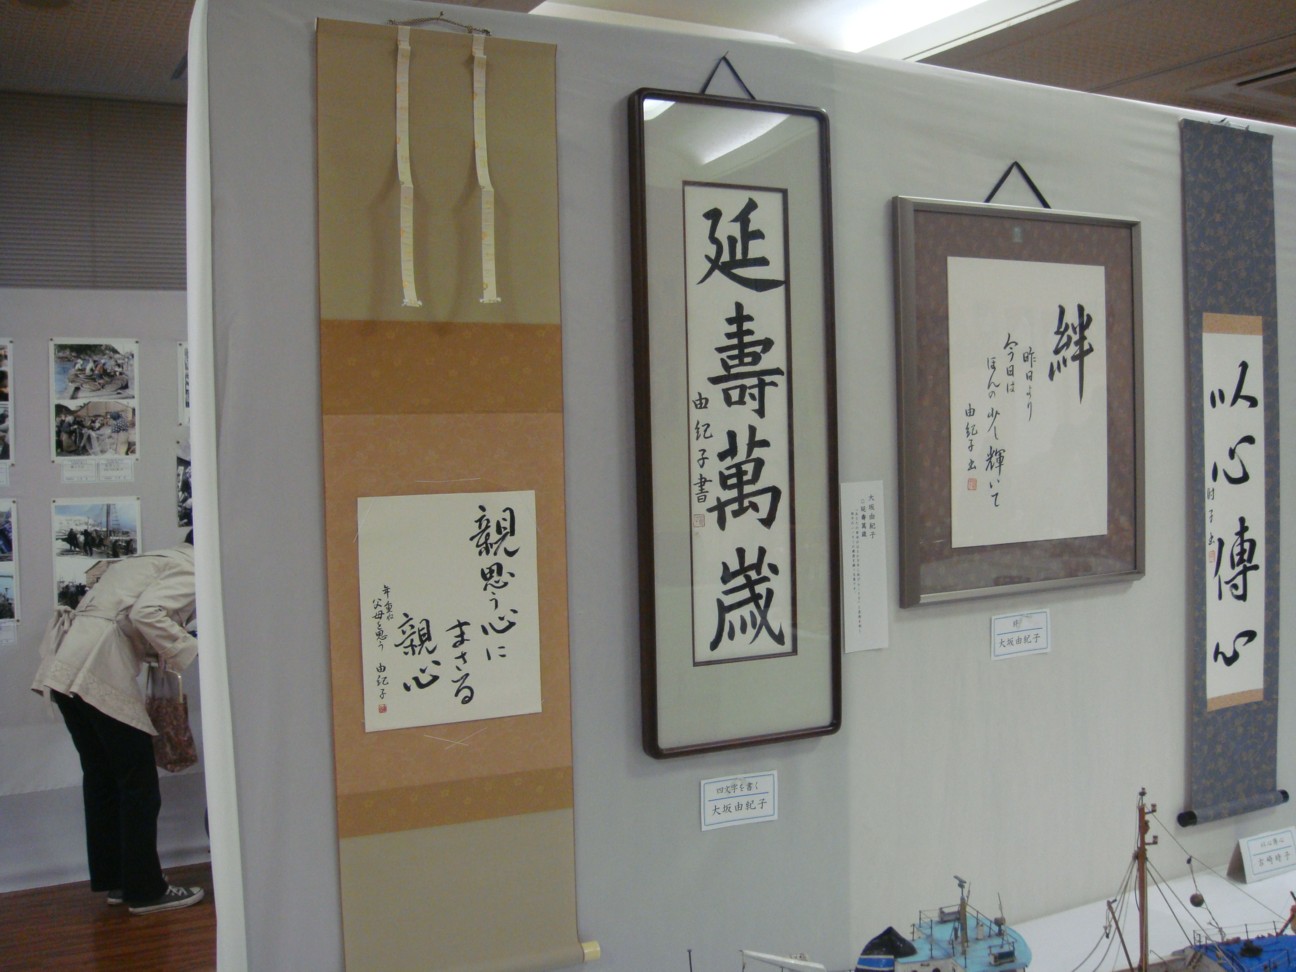 親思う心に
まさる
親心
年重ね
父母を思う
由紀子
延壽萬歳
由紀子書
四文字を書く
大坂由紀子
大坂由紀子
延壽萬歳
絆
昨日より
今日は
ほんの少し輝いて
由紀子書
絆
大坂由紀子
以心傳心